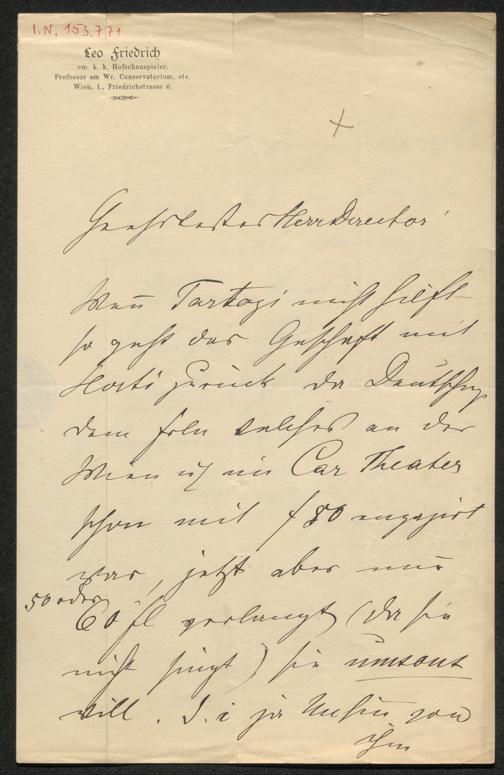 I.N. 153.771
Leo Friedrich
em. k. k. Hofschauspieler.
Professor am Wr. Conservatorium, etc.
Wien, I., Friedrichstrasse 6.
Geehrtester Herr Director!
Wenn nicht hilft
so geht das Geschäft mit
zurück da
dem an der
Wien u im Car Theater
schon mit f 80 engagirt
war, jetzt aber nur
50 oder
60 fl verlangt (da sie
nicht singt) sie umsonst
will. D. i ja Unsinn von
ihm